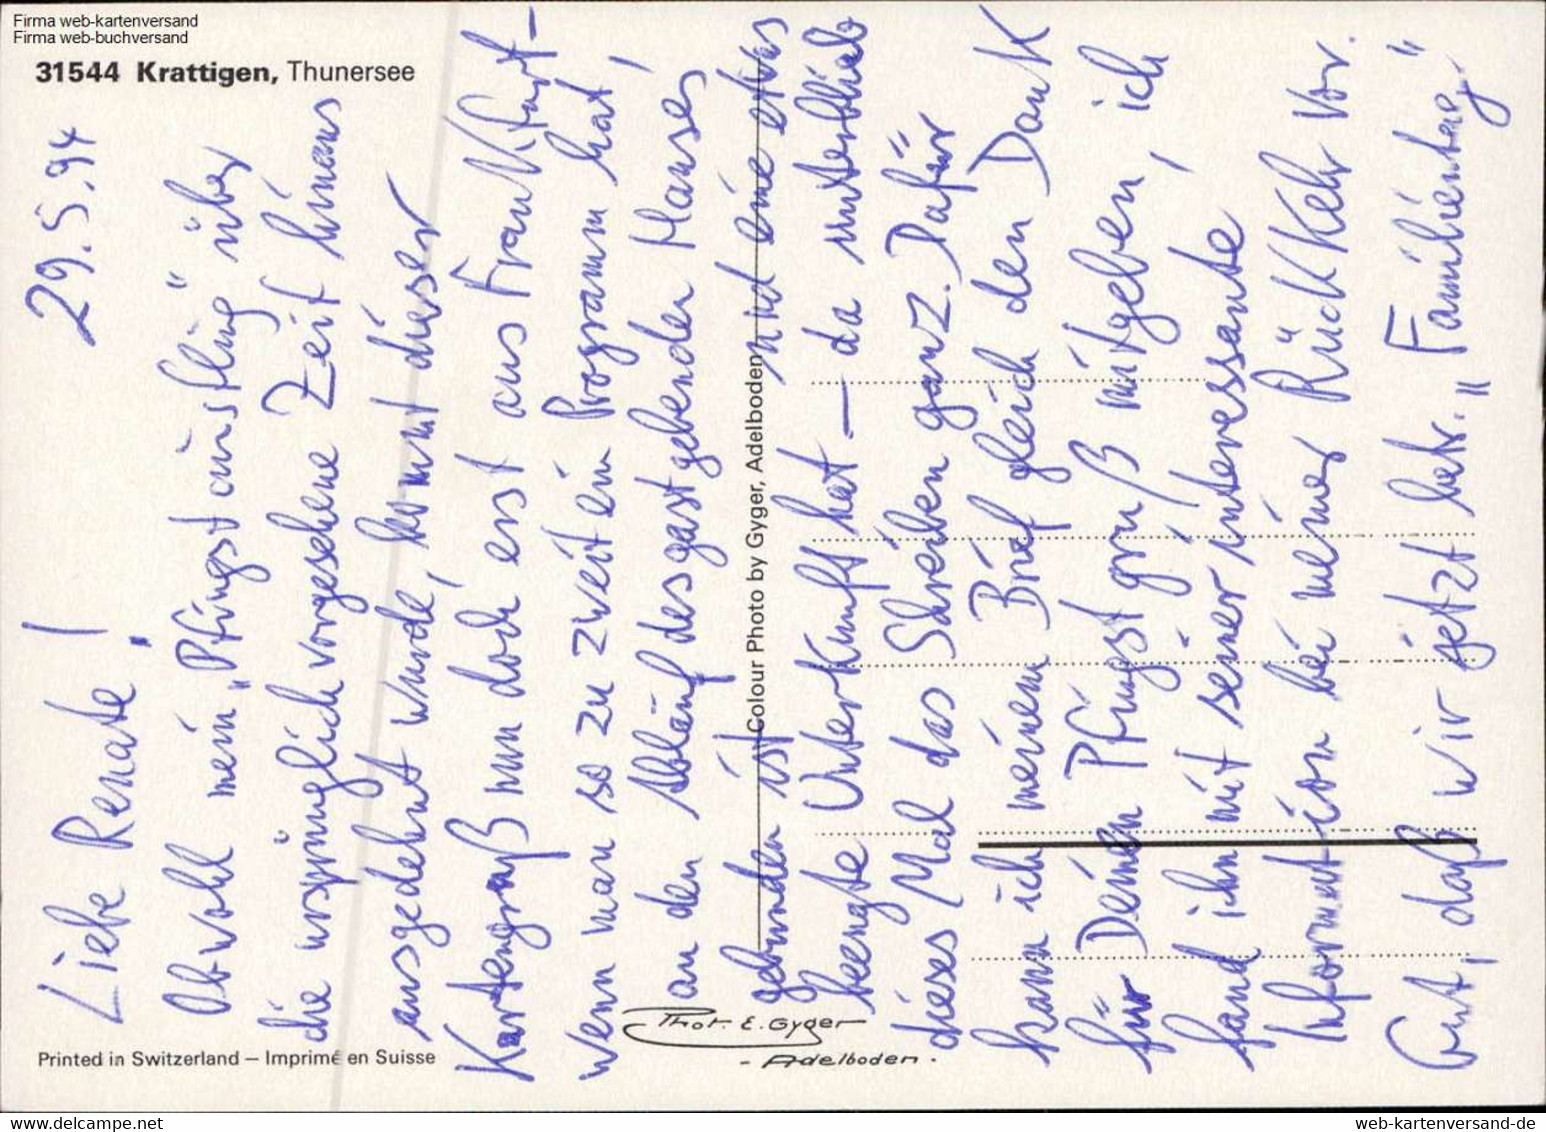 Firma web-kartenversand
Firma web-buchversand
31544 Krattigen, Thunersee
29.5.94
Liebe Renate!
Obwohl mein „Pfingstausflug" über
die ursprünglich vorgesehene Zeit hinaus
ausgedehnt wurde, kommt dieser
Kartengruß nun doch erst aus Frankfurt –
wenn man so zu zweit ein Programm hat,
an den Ablauf des gastgebenden Hauses
gebunden ist und eine etwas
beengte Unterkunft hat – da unterblieb
dieses Mal das Schreiben ganz. Dafür
kann ich meinem Brief gleich den Dank
für Deinen Pfingstgruß mitgeben, ich
fand ihn mit seiner interessante
Information bei meiner Rückkehr vor.
Gut, daß wir jetzt betr. „Familientag"
Colour Photo by Gyger, Adelboden
Phot. E. Gyger
- Adelboden.
Printed in Switzerland – Imprimé en Suisse
web-kartenversand.delcampe.net
www.web-kartenversand-de